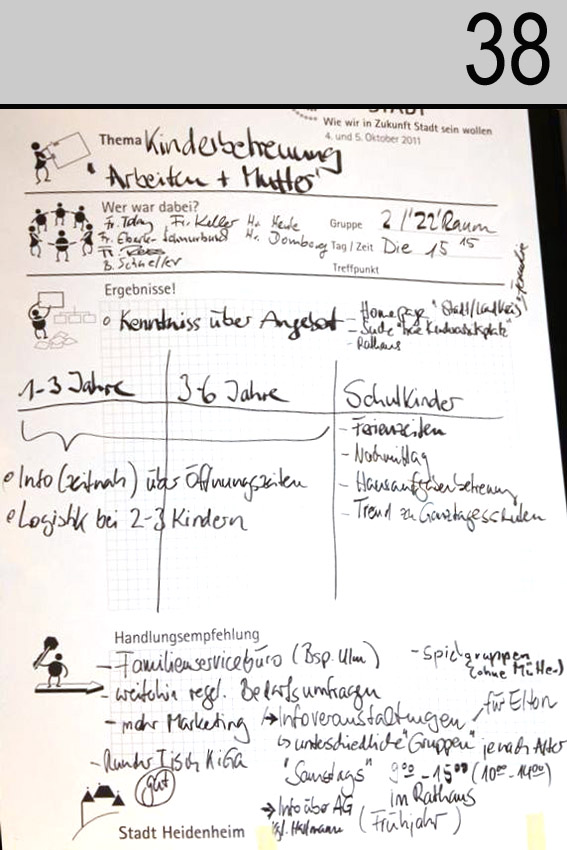 38
STADT
Wie wir in Zukunft Stadt sein wollen
4. und 5. Oktober 2011
Thema Kinderbetreuung
"Arbeiten + Mutter"
Wer war dabei?
Fr. Keller
Fr. Eberle-Schnurbund Hr. Domberg
B. Schaeffer
Gruppe 2 / '22' Raum
Tag / Zeit Die 15 15
Treffpunkt
Ergebnisse!
o Kenntniss über Angebot - Homepage "Stadt/Landkreis"
- Rathaus
1-3 Jahre
3-6 Jahre
Schulkinder
- Ferienzeiten
- Nachmittag
- Hausaufgabenbetreuung
- Trend zu Ganztagesschulen
• Info (zeitnah) über Öffnungszeiten
• Logistik bei 2-3 Kindern
Handlungsempfehlung
- Familienservicebüro (Bsp. Ulm)
- Spielgruppen
(ohne Mütter)
- weiterhin regel. Bedarfsumfragen
- mehr Marketing → Infoveranstaltungen für Eltern
↳ unterschiedliche "Gruppen" je nach Alter
- Runder Tisch KiGa
gut
"Samstags" 9 00 - 15 00 (10 00 - 14 00)
im Rathaus
(Frühjahr)
→ Info über AG
Stadt Heidenheim